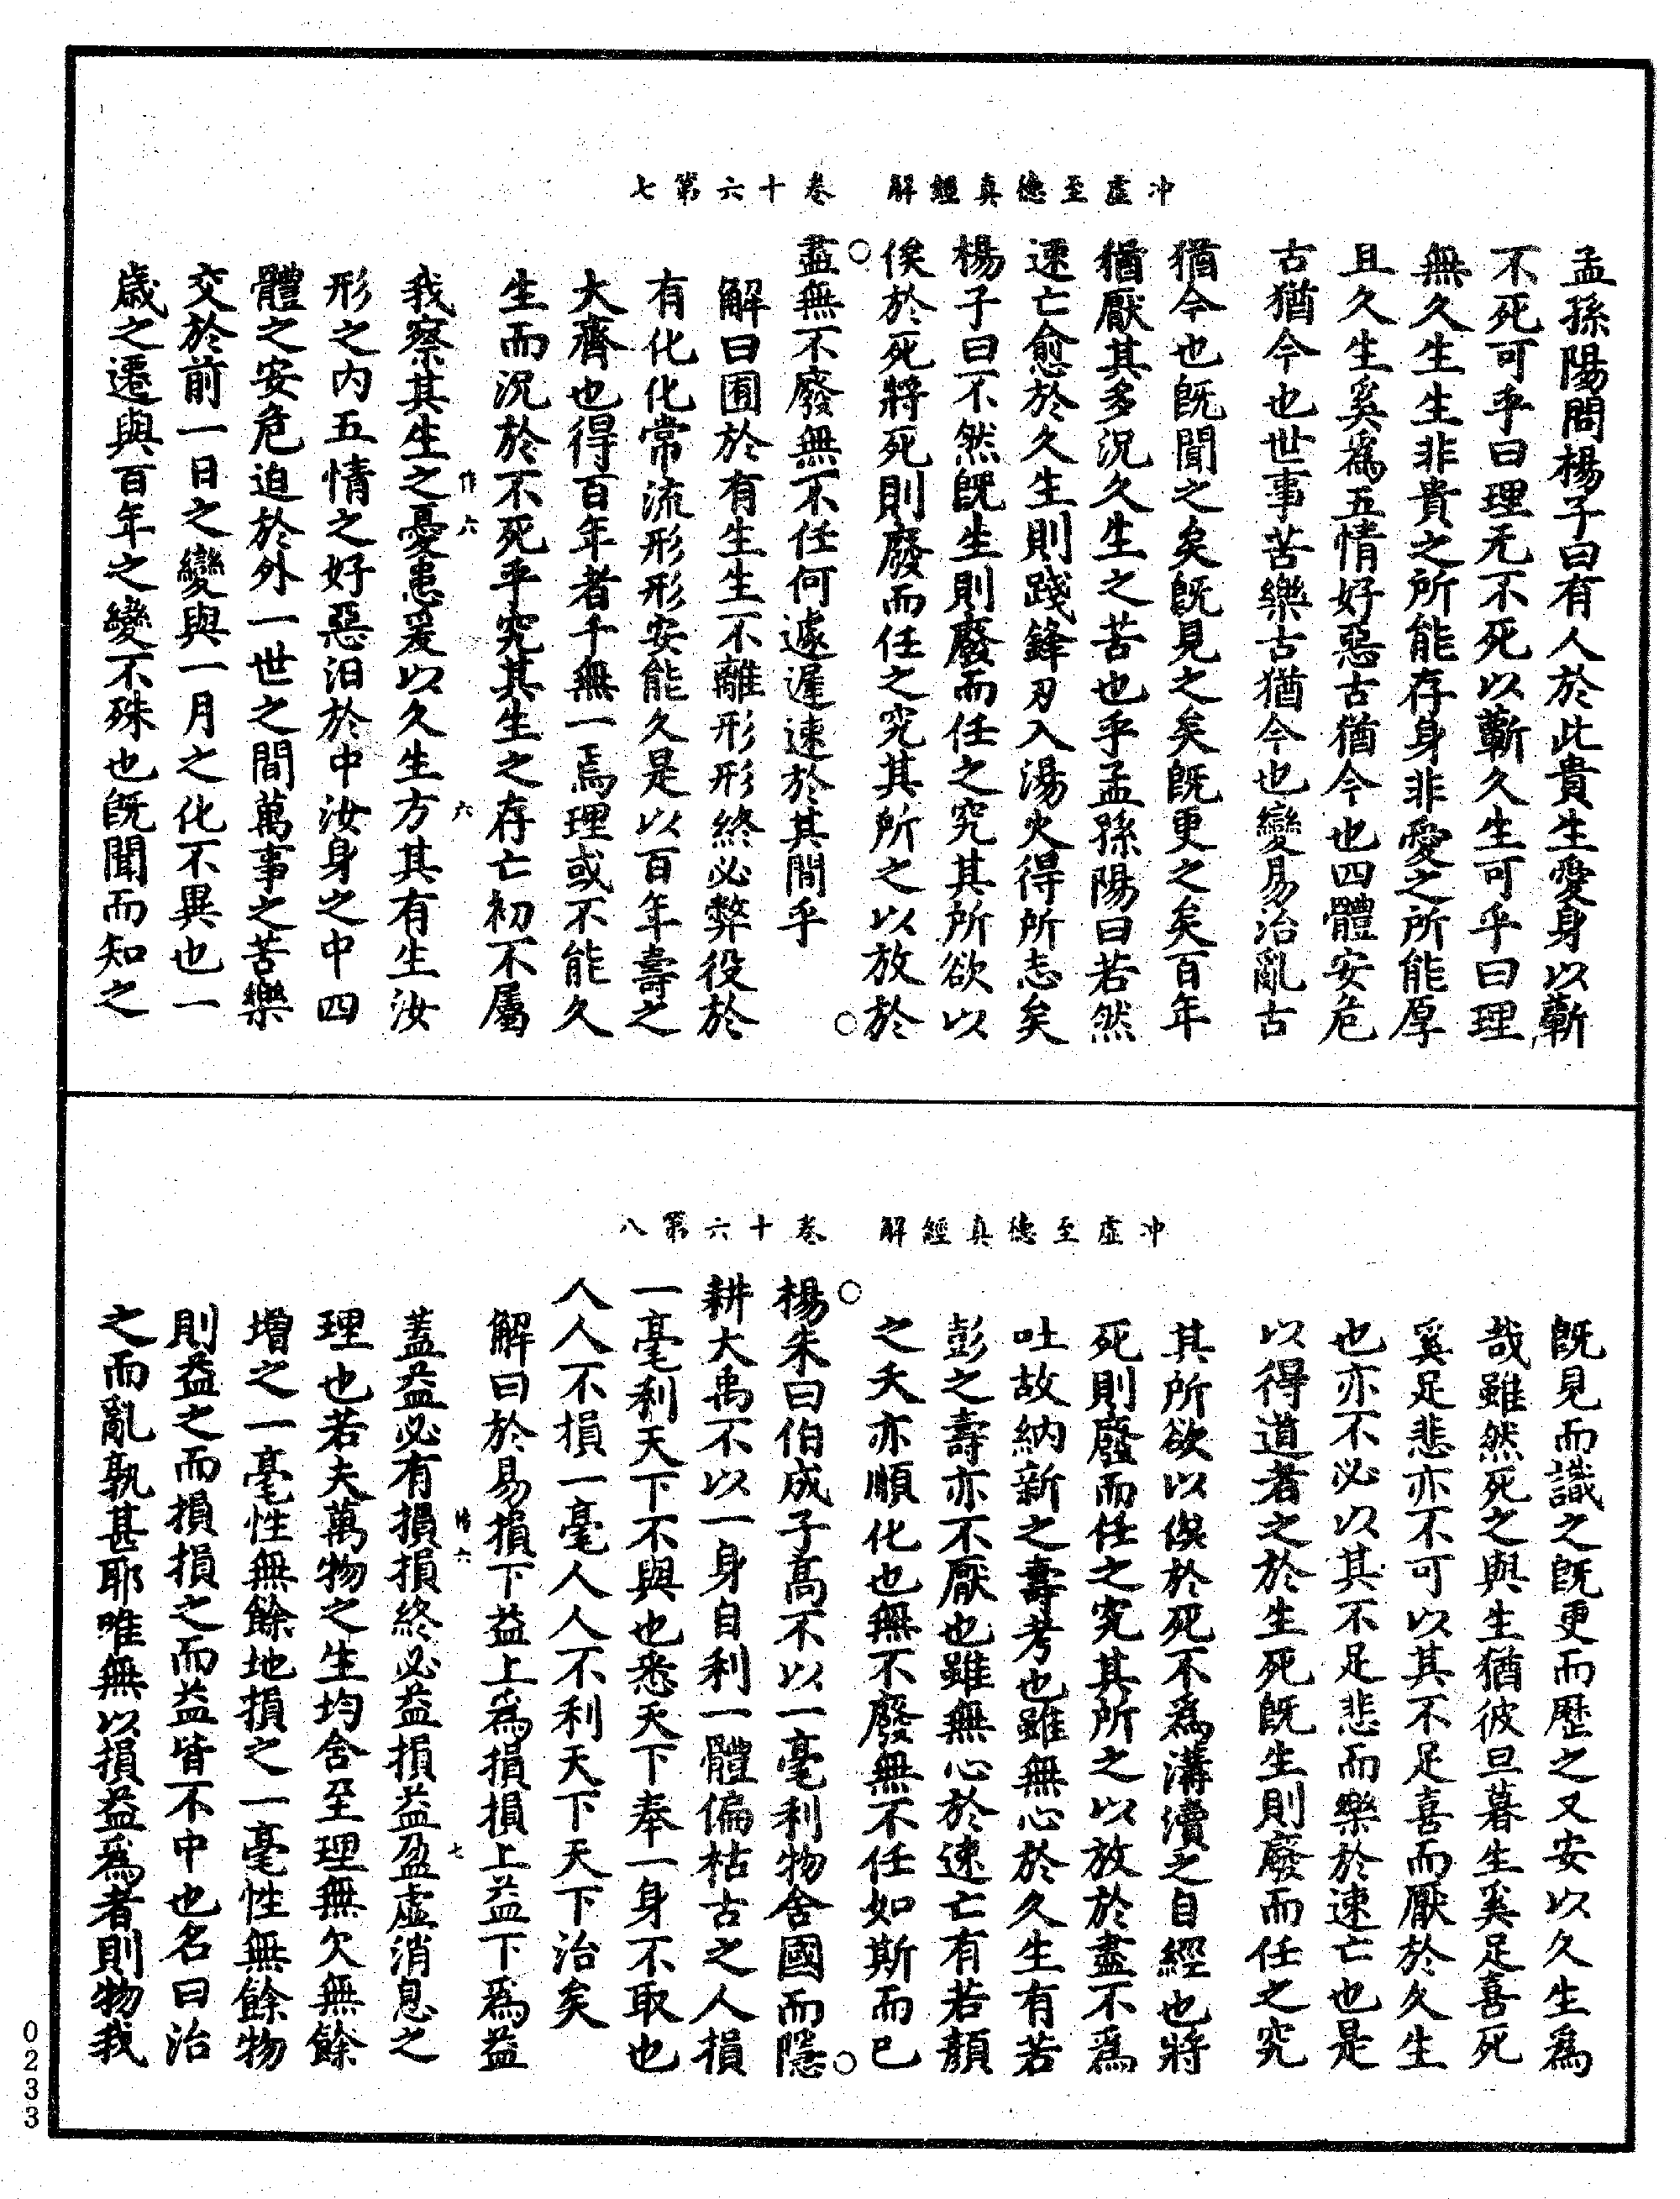 冲虛至德真經解　卷十六第七
孟孫陽問楊子曰有人於此貴生愛身以蘄
不死可乎曰理无不死以蘄久生可乎曰理
無久生生非貴之所能存身非愛之所能厚
且久生奚爲五情好惡古猶今也四體安危
古猶今也世事苦樂古猶今也變易治亂古
猶今也旣聞之矣旣見之矣旣更之矣百年
猶厭其多況久生之苦也乎孟孫陽曰若然
速亡愈於久生則踐鋒刃入湯火得所志矣
楊子曰不然旣生則廢而任之究其所欲以
俟於死將死則廢而任之究其所之以放於
盡無不廢無不任何遽遲速於其間乎
解曰囿於有生生不離形形終必弊役於
有化化常流形形安能久是以百年壽之
大齊也得百年者千無一焉理或不能久
生而沉於不死乎究其生之存亡初不屬
我察其生之憂患爰以久生方其有生汝
形之內五情之好惡汨於中汝身之中四
體之安危迫於外一世之間萬事之苦樂
交於前一日之變與一月之化不異也一
歲之遷與百年之變不殊也旣聞而知之
冲虛至德真經解　卷十六第八
旣見而識之旣更而歷之又安以久生爲
哉雖然死之與生猶彼旦暮生奚足喜死
奚足悲亦不可以其不足喜而厭於久生
也亦不必以其不足悲而樂於速亡也是
以得道者之於生死旣生則廢而任之究
其所欲以俟於死不爲溝瀆之自經也將
死則廢而任之究其所之以放於盡不爲
吐故納新之壽考也雖無心於久生有若
彭之壽亦不厭也雖無心於速亡有若顏
之夭亦順化也無不廢無不任如斯而已
楊朱曰伯成子高不以一毫利物舍國而隱
耕大禹不以一身自利一體偏枯古之人損
一毫利天下不與也悉天下奉一身不取也
人人不損一毫人人不利天下天下治矣
解曰於易損下益上爲損損上益下爲益
蓋益必有損損終必益損益盈虛消息之
理也若夫萬物之生均舍至理無欠無餘
增之一毫性無餘地損之一毫性無餘物
則益之而損損之而益皆不中也名曰治
之而亂孰甚耶唯無以損益爲者則物我
0233